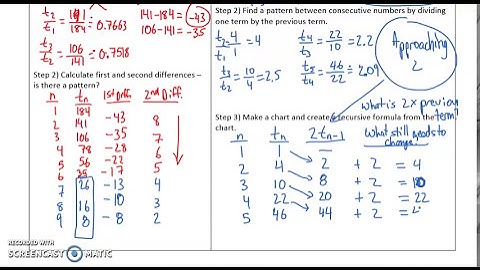 t₂/t₁ = 141/184 = 0.7663
t₃/t₂ = 106/141 = 0.7518
141-184 = -43
106-141 = -35
Step 2) Calculate first and second differences –
is there a pattern?
n tn 1st Diff. 2nd Diff.
1 184
2 141 -43 8
3 106 -35 7
4 78 -28 6
5 56 -22 5
6 39 -17
7 26 -13 4
8 16 -10 3
9 8 -8 2
Step 2) Find a pattern between consecutive numbers by dividing
one term by the previous term.
= 4/1 = 4
t₄/t₃ = 22/10 = 2.2
t₃/t₂ = 10/4 = 2.5
t₅/t₄ = 46/22 = 2.09
Approaching
2
what is 2x previous
term?
Step 3) Make a chart and create recursive formula from the
chart.
n tn 2·tn-1 What still needs to
change?
1 1 —
2 4 2 + 2 = 4
3 10 8 + 2 = 10
4 22 20 + 2 = 22
5 46 44 + 2 =
RECORDED WITH
SCREENCAST MATIC